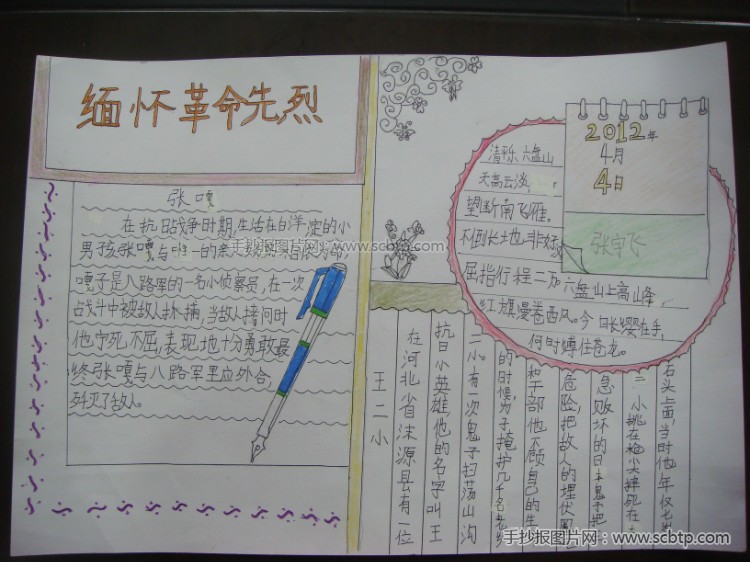 缅怀革命先烈
张嘎
在抗日战争时期,生活在白洋淀的小
男孩张嘎与唯一的亲
嘎子是八路军的一名小侦察员,在一次
战斗中被敌人抓捕,当敌人拷问时
他宁死不屈,表现地十分勇敢,最
终张嘎与八路军里应外合,
歼灭了敌人。
2012年
4月
4日
张宇飞
清平乐 六盘山
天高云淡,
望断南飞雁。
不倒长地非好
屈指行程二万六盘山上高峰,
红旗漫卷西风。今日长缨在手,
何时缚住苍龙。
王二小
在河北省沫源县有一位
抗日小英雄,他的名字叫王
二小,有一次鬼子扫荡山沟
的时候,为了掩护几千名老
和干部他不顾自己的生
危险,把敌人的埋伏圈
急败坏的日本鬼子把
二小挑在枪尖摔死在大
石头上面,当时他年仅七
手抄报图片网:www.scbtp.com
手抄报图片网 www.scbtp.com